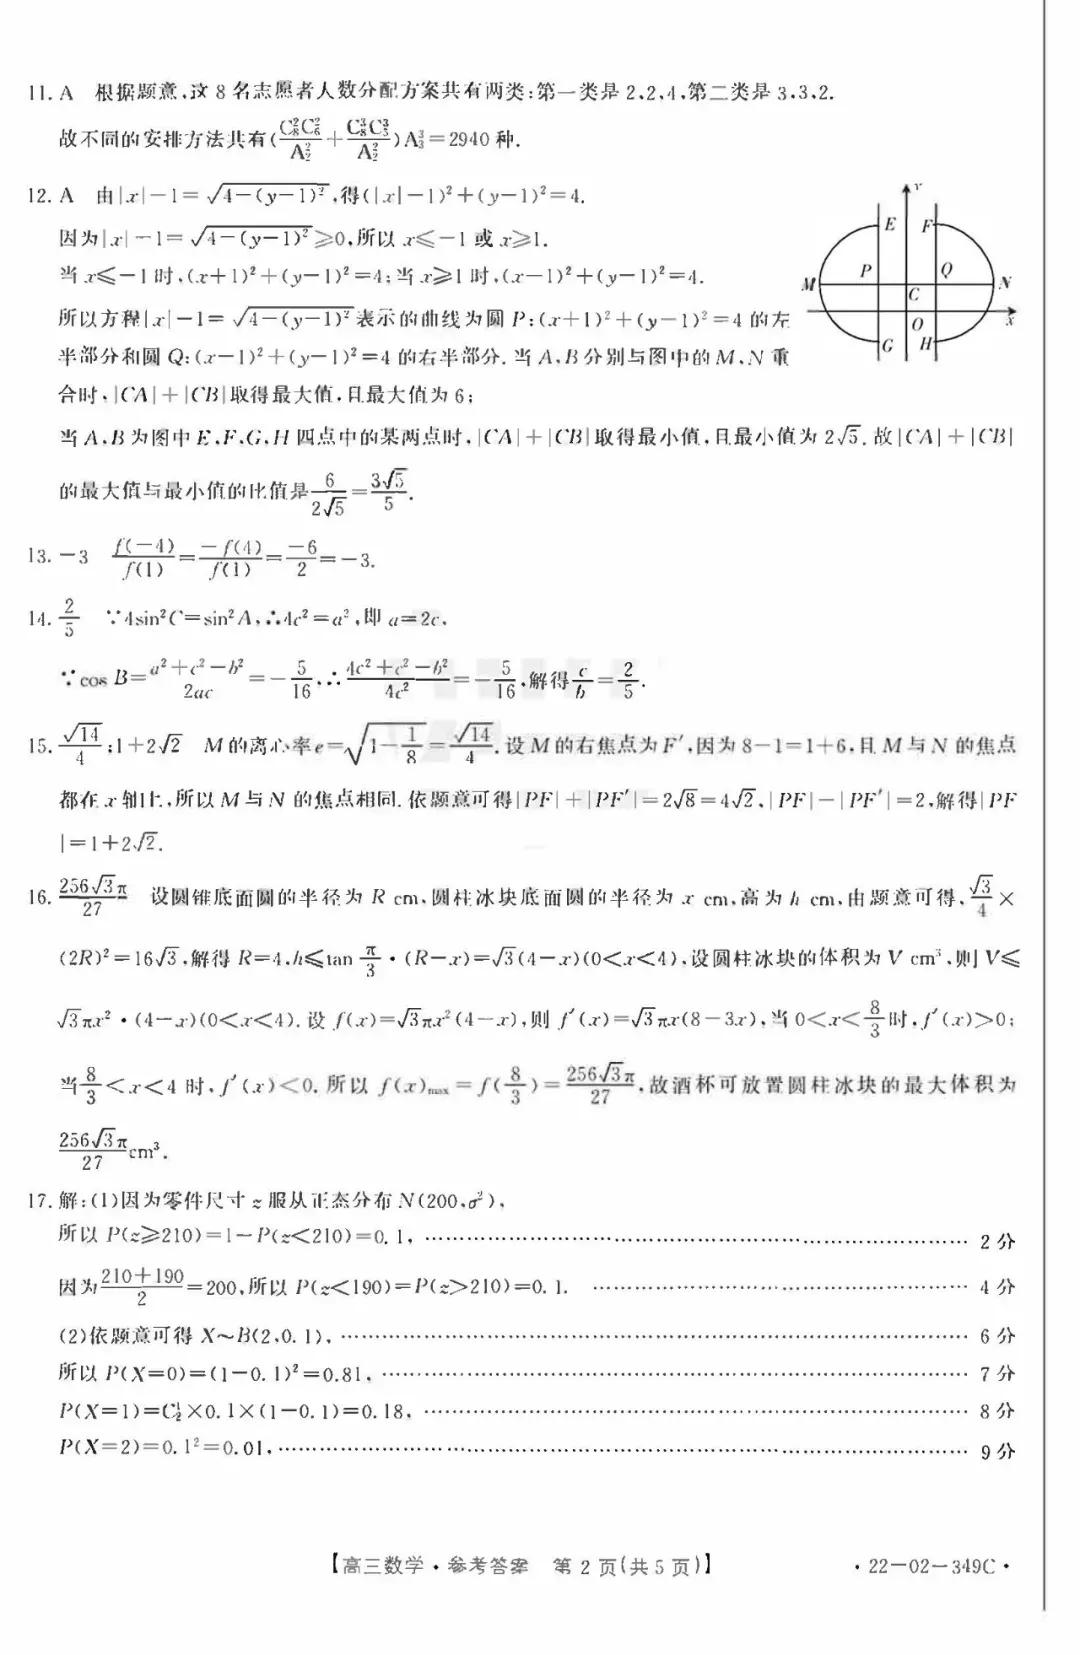 11. A 根据题意,这 8 名志愿者人数分配方案共有两类:第一类是 2,2,4,第二类是 3,3,2.
故不同的安排方法共有($\frac{C_8^2C_6^2}{A_2^2}+\frac{C_8^3C_5^3}{A_2^2}$)$A_3^3$=2940 种.
12. A 由|x|-1=$\sqrt{4-(y-1)^2}$,得(|x|-1)²+(y-1)²=4.
因为|x|-1=$\sqrt{4-(y-1)^2}$≥0,所以 x≤-1 或 x≥1.
当 x≤-1 时,(x+1)²+(y-1)²=4;当 x≥1 时,(x-1)²+(y-1)²=4.
所以方程|x|-1=$\sqrt{4-(y-1)^2}$表示的曲线为圆 P:(x+1)²+(y-1)²=4 的左
半部分和圆 Q:(x-1)²+(y-1)²=4 的右半部分.当 A,B分别与图中的 M,N 重
合时,|CA|+|CB|取得最大值,且最大值为 6;
y
E F
P Q
M C N
O x
G H
当 A,B 为图中 E,F,G,H 四点中的某两点时,|CA|+|CB|取得最小值,且最小值为 2√5.故|CA|+|CB|
的最大值与最小值的比值是$\frac{6}{2\sqrt{5}}=\frac{3\sqrt{5}}{5}$.
13. -3 $\frac{f(-4)}{f(1)}=\frac{-f(4)}{f(1)}=\frac{-6}{2}$=-3.
14. $\frac{2}{5}$ ∵4sin²C=sin²A,∴4c²=a²,即 a=2c.
∵cos B=$\frac{a^2+c^2-b^2}{2ac}=-\frac{5}{16}$,∴$\frac{4c^2+c^2-b^2}{4c^2}=-\frac{5}{16}$,解得$\frac{c}{b}=\frac{2}{5}$.
15. $\frac{\sqrt{14}}{4}$;1+2√2 M 的离心率 e=$\sqrt{1-\frac{1}{8}}=\frac{\sqrt{14}}{4}$.设 M 的右焦点为 F′,因为 8-1=1+6,且 M 与 N 的焦点
都在 x 轴上,所以 M 与 N 的焦点相同.依题意可得|PF|+|PF′|=2√8=4√2,|PF|-|PF′|=2,解得|PF
|=1+2√2.
16. $\frac{256\sqrt{3}π}{27}$ 设圆锥底面圆的半径为 R cm,圆柱冰块底面圆的半径为 x cm,高为 h cm,由题意可得,$\frac{\sqrt{3}}{4}$×
(2R)²=16√3,解得 R=4,h≤tan $\frac{π}{3}$·(R-x)=√3(4-x)(0<x<4),设圆柱冰块的体积为 V cm³,则 V≤
√3πx²·(4-x)(0<x<4).设 f(x)=√3πx²(4-x),则 f′(x)=√3πx(8-3x),当 0<x<$\frac{8}{3}$时,f′(x)>0;
当$\frac{8}{3}$<x<4 时,f′(x)<0.所以 f(x)$_{max}$=f($\frac{8}{3}$)=$\frac{256\sqrt{3}π}{27}$,故酒杯可放置圆柱冰块的最大体积为
$\frac{256\sqrt{3}π}{27}$cm³.
17. 解:(1)因为零件尺寸 z 服从正态分布 N(200,σ²),
所以 P(z≥210)=1-P(z<210)=0.1, …… 2 分
因为$\frac{210+190}{2}$=200,所以 P(z<190)=P(z>210)=0.1. …… 4 分
(2)依题意可得 X~B(2,0.1), …… 6 分
所以 P(X=0)=(1-0.1)²=0.81, …… 7 分
P(X=1)=$C_2^1$×0.1×(1-0.1)=0.18, …… 8 分
P(X=2)=0.1²=0.01, …… 9 分
【高三数学·参考答案 第 2 页(共 5 页)】 ·22-02-349C·